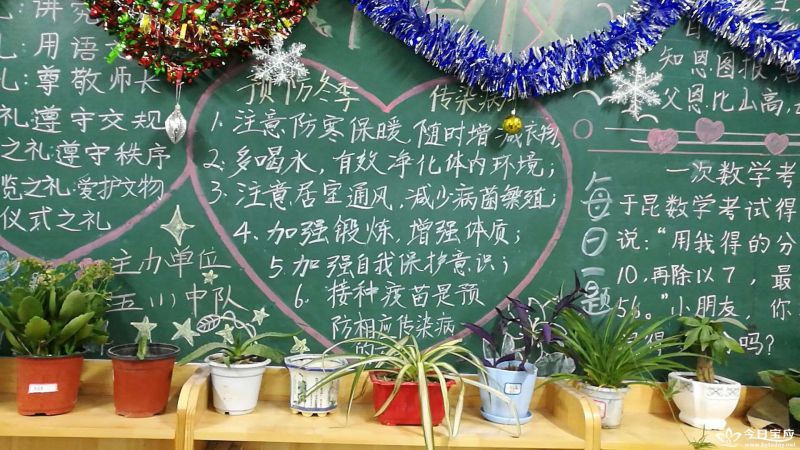 讲究
礼:用语文
礼:尊敬师长
礼:遵守交规
之礼:遵守秩序
览之礼:爱护文物
仪式之礼
主办单位
五(1)中队
预防冬季传染病
1、注意防寒保暖,随时增减衣物
2、多喝水,有效净化体内环境;
3、注意居室通风,减少病菌繁殖;
4、加强锻炼,增强体质;
5、加强自我保护意识;
6、接种疫苗是预
防相应传染病
每日一题
知恩图报
父恩比山高
一次数学考
于昆数学考试得
说:“用我得的分
10,再除以7,最
56。”小朋友,你
吗?
今日宝应